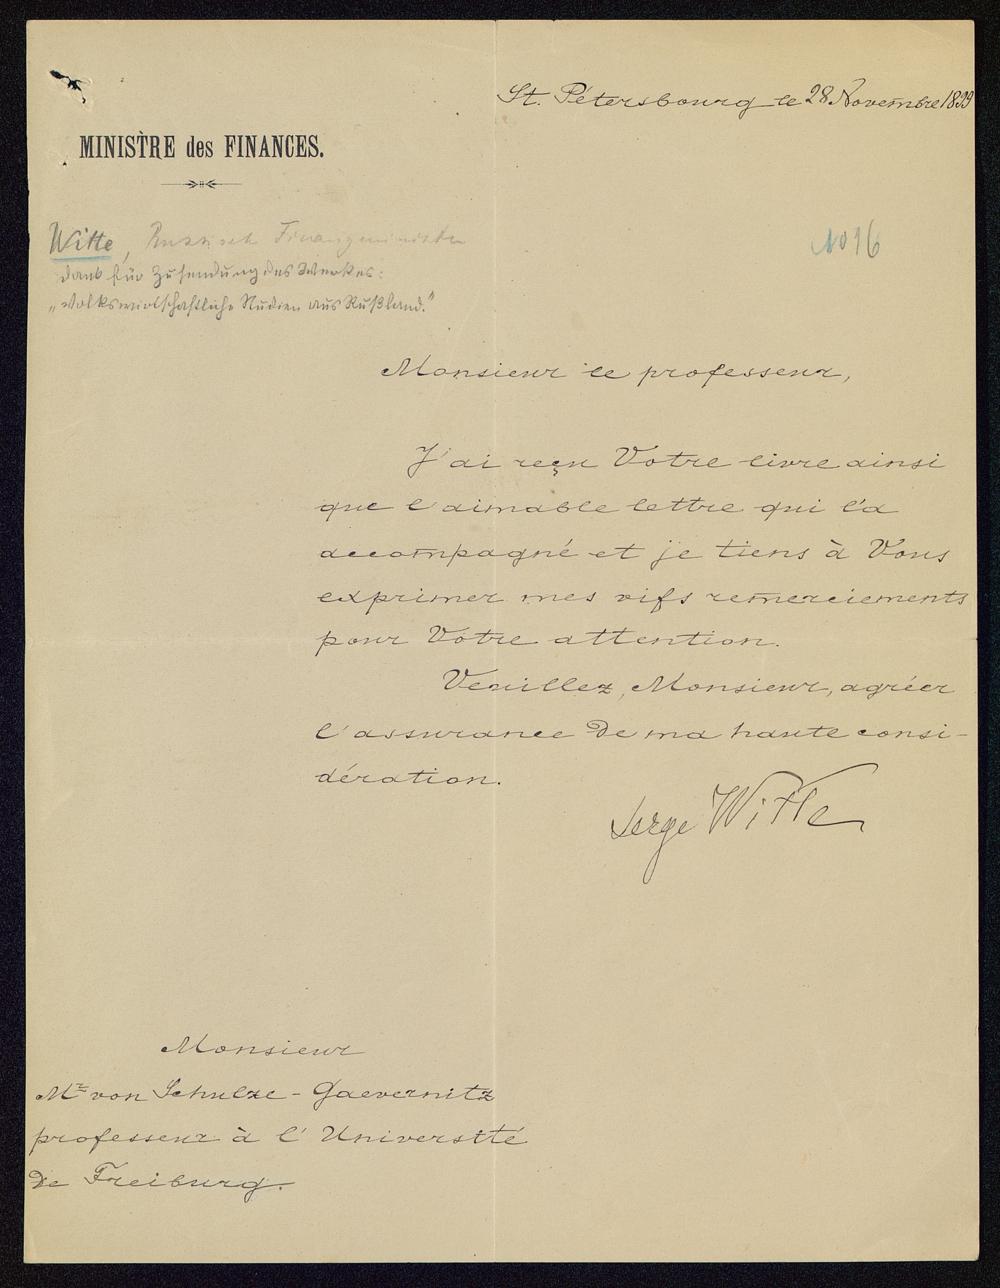 St. Pétersbourg le 28 Novembre 1899
MINISTÈRE des FINANCES.
Witte, Russisch Finanzminister
dankt für Zusendung des Werkes:
"Volkswirtschaftliche Studien aus Rußland."
No 16
Monsieur le professeur,
J'ai reçu Votre livre ainsi
que l'aimable lettre qui l'a
accompagné et je tiens à Vous
exprimer mes vifs remerciements
pour Votre attention.
Veuillez, Monsieur, agréer
l'assurance de ma haute consi-
dération.
Serge Witte
Monsieur
Mr von Schulze-Gaevernitz
professeur à l'Université
de Freiburg.